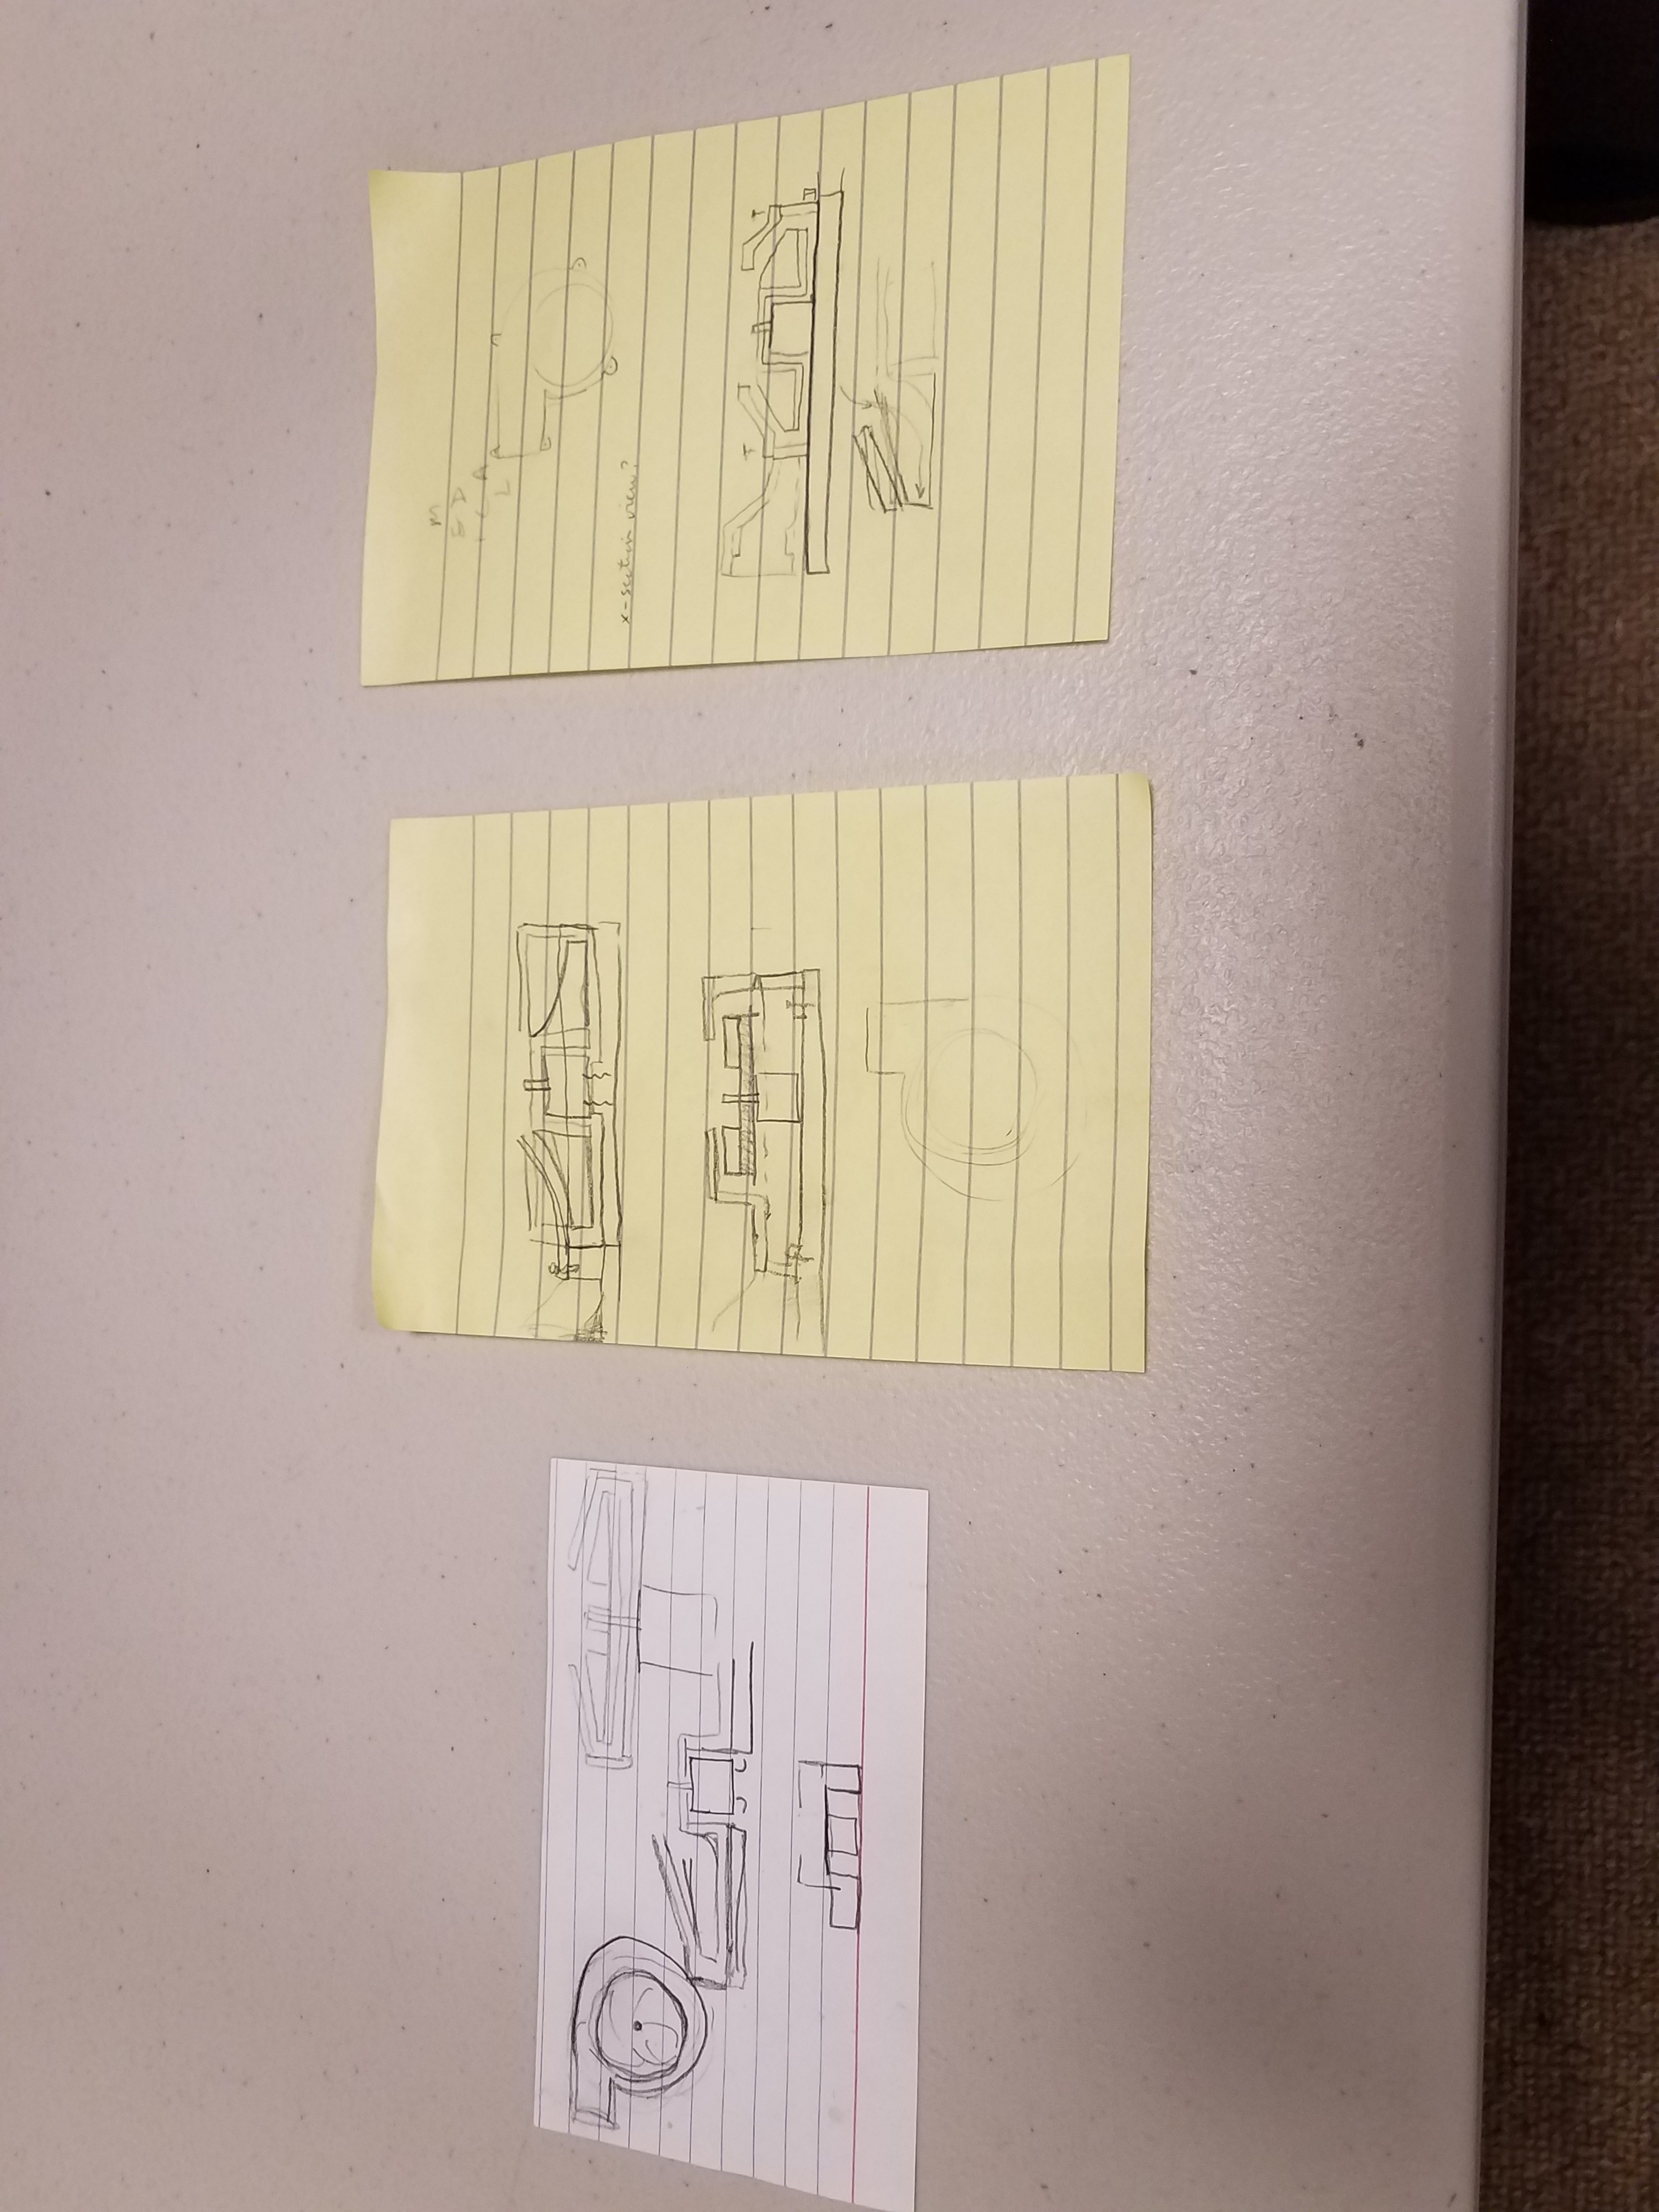 M
E D
I C A
L
x-section view?